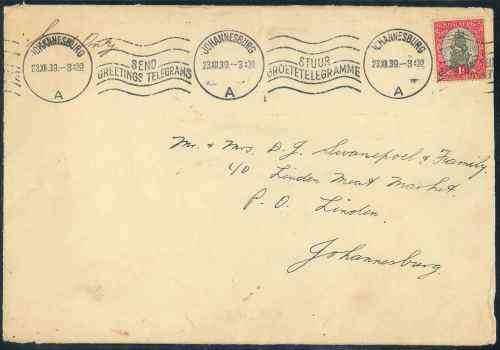 JOHANNESBURG
23.XII.39.-3
A
SEND
GREETINGS TELEGRAMS
JOHANNESBURG
23.XII.39.-3
A
STUUR
GROETETELEGRAMME
JOHANNESBURG
23.XII.39.-3
A
1d
only
Mr. & Mrs. D. J. Swanepoel & Family
c/o Linden Meat Market.
P. O. Linden.
Johannesburg.